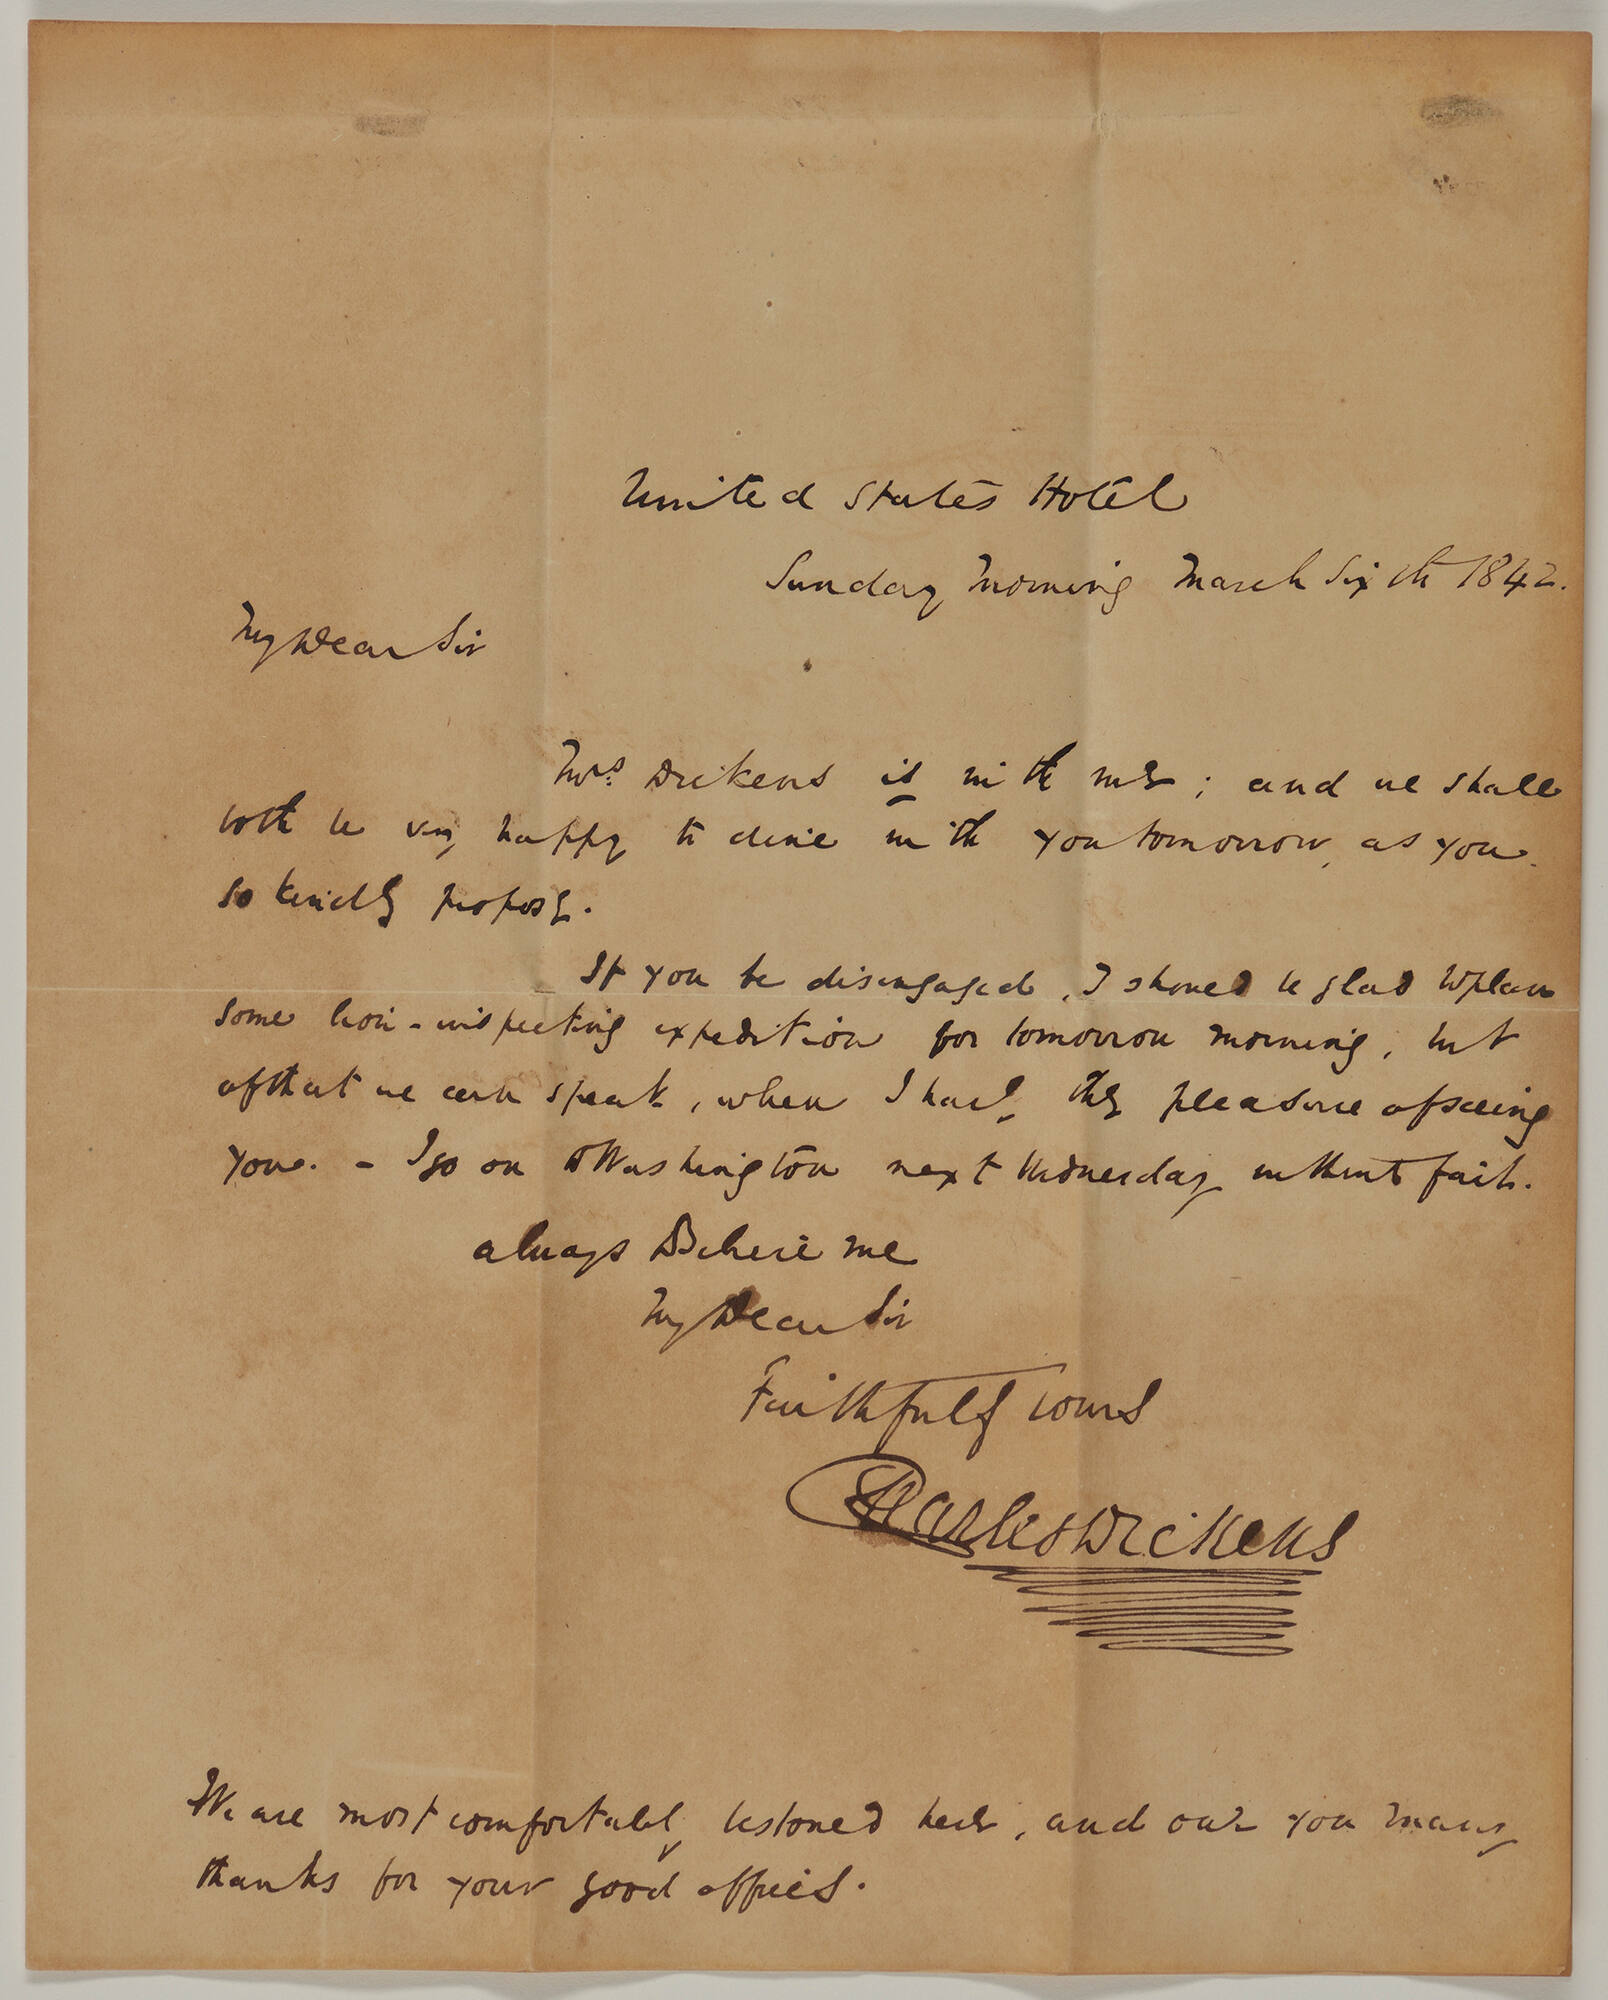 United States Hotel
Sunday Morning March Sixth 1842.
My Dear Sir
Mrs. Dickens is with me; and we shall
both be very happy to dine with you tomorrow, as you
so kindly propose.
If you be disengaged, I should be glad to plan
some lion-inspecting expedition for tomorrow morning, but
of that we can speak, when I have the pleasure of seeing
you. - I go on to Washington next Wednesday without fail.
always Believe me
My Dear Sir
Faithfully Yours
Charles Dickens
We are most comfortably bestowed here, and owe you many
thanks for your good offices.